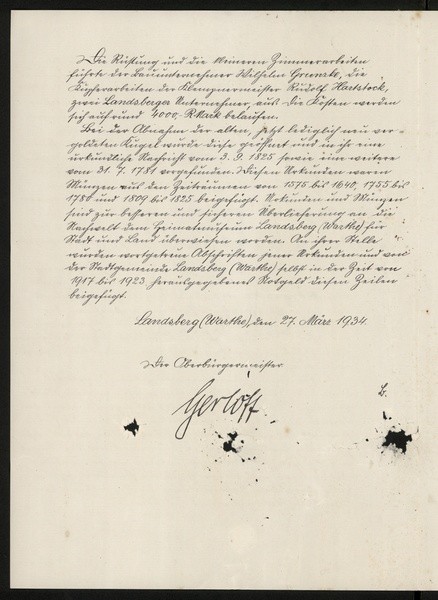 Die Rüstung und die kleineren Zimmerarbeiten
führte der Bauunternehmer Wilhelm die
Kupferarbeiten der Klempnermeister Rudolf Hartstock,
zwei Landsberger Unternehmer, aus. Die Kosten werden
sich auf rund 4000,- RMark belaufen.
Bei der Abnahme der alten, jetzt lediglich neu ver-
goldeten Kugel wurde diese geöffnet und in ihr eine
urkundliche Nachricht vom 3. 9. 1825 sowie eine weitere
vom 31. 7. 1781 vorgefunden. Diesen Urkunden waren
Münzen aus den Zeiträumen von 1575 bis 1640, 1755 bis
1780 und 1809 bis 1825 beigefügt. Urkunden und Münzen
sind zur besseren und sicheren Überlieferung an die
Nachwelt dem Heimatmuseum Landsberg (Warthe) für
Stadt und Land überwiesen worden. An ihrer Stelle
wurden wortgetreue Abschriften jener Urkunden und von
der Stadtgemeinde Landsberg (Warthe) selbst in der Zeit von
1917 bis 1923 herausgegebenes Notgeld diesen Zeilen
beigefügt.
Landsberg (Warthe), den 27. März 1934.
Der Oberbürgermeister.
Gerloff